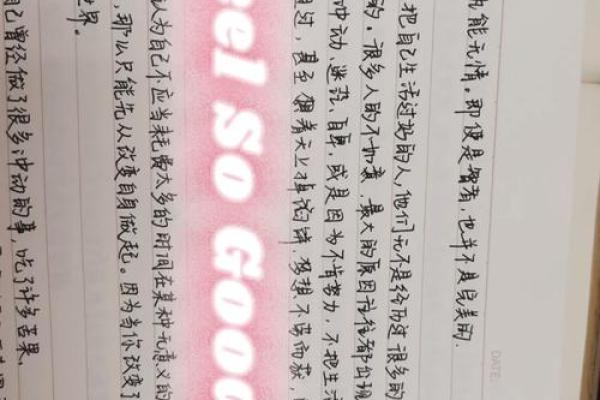 DATE:
能无情。即便是智者,也并不是完美的.
把自己生活过好的人,他们无不是经历过很多的
的。很多人的不如意,最大的原因往往都出现
冲动、迷茫、自卑,或是因为不肯努力,不把生活
过,甚至想着天上掉馅饼,梦想不劳而获,
eel So Good
认为自己不应当耗费太多的时间在某种无意义的
,那么只能先从改变自身做起。因为当你改变了
世界。
自己曾经做了很多冲动的事,吃了许多苦果、